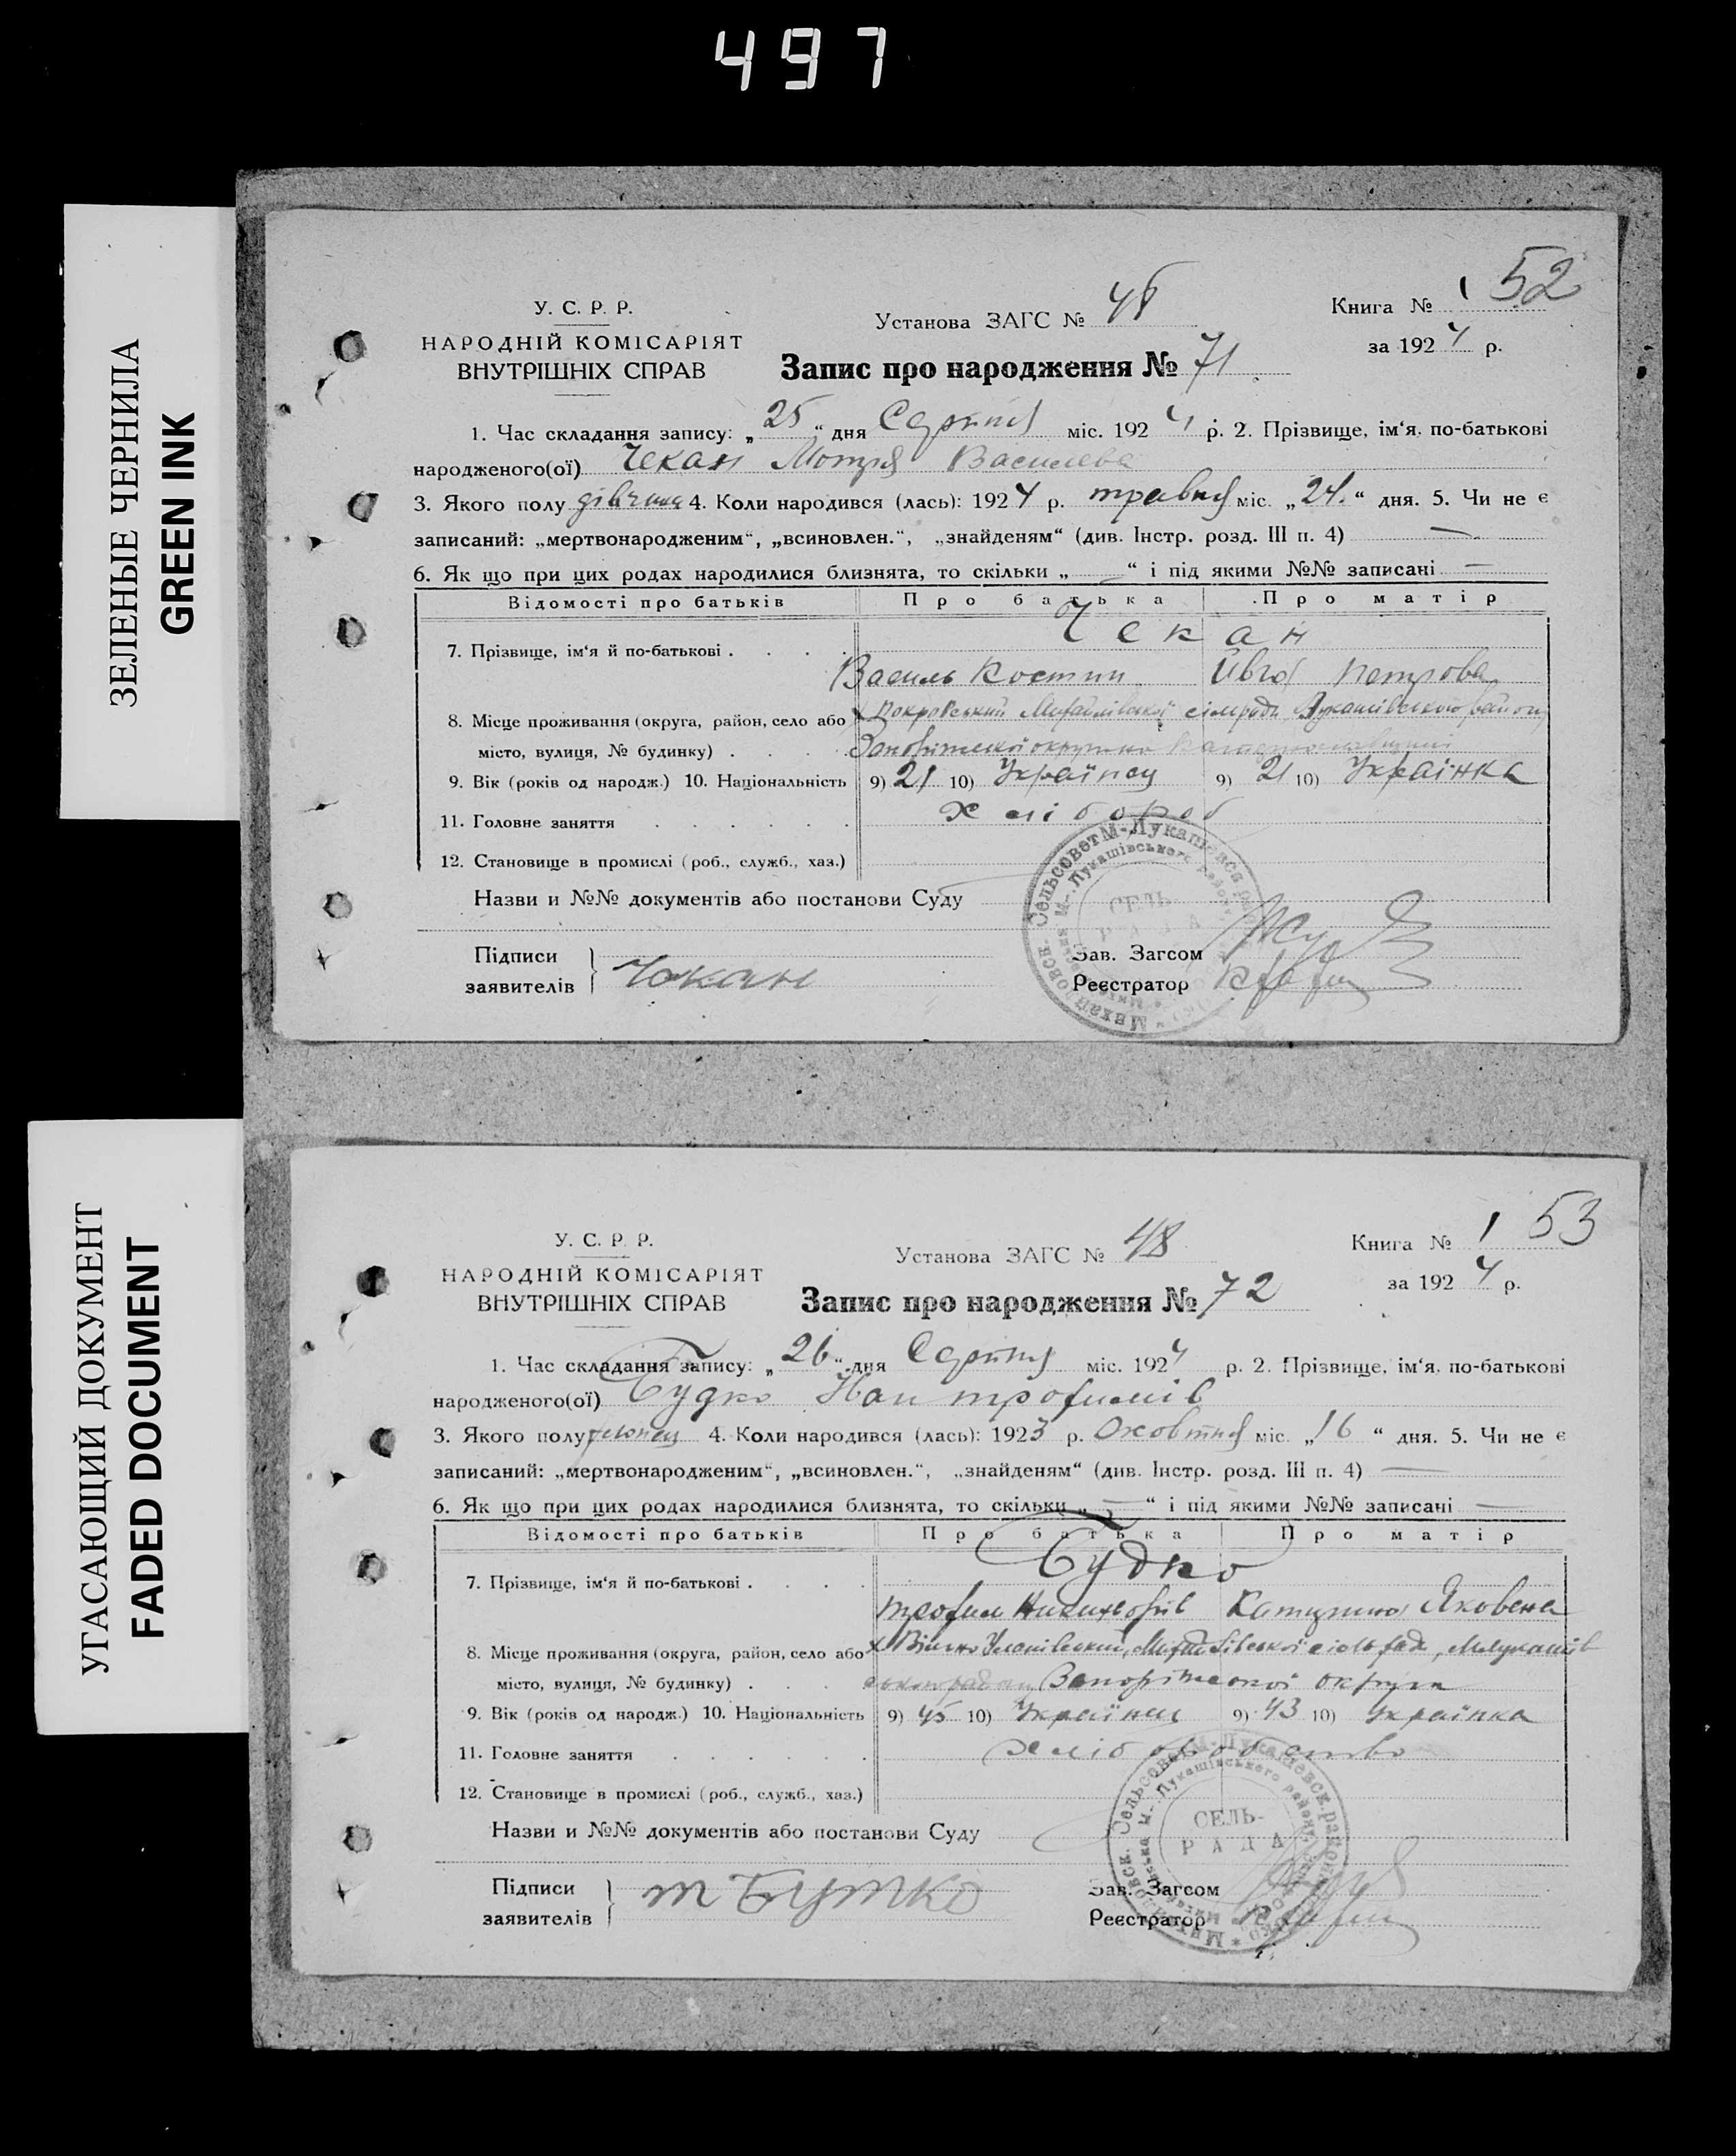 497
ЗЕЛЕНЫЕ ЧЕРНИЛА
GREEN INK
52
У. С. Р. Р.
НАРОДНІЙ КОМІСАРІЯТ
ВНУТРІШНІХ СПРАВ
Установа ЗАГС № 48
Книга № 1
за 1924 р.
Запис про народження № 71
1. Час складання запису: „25“ дня Серпня міс. 1924 р. 2. Прізвище, ім‘я, по-батькові
народженого(ої) Чекан Мотря Василева
3. Якого полу дівчина 4. Коли народився (лась): 1924 р. травня міс. „24.“ дня. 5. Чи не є
записаний: „мертвонародженим“, „всиновлен.“, „знайденям“ (див. Інстр. розд. III п. 4) —
6. Як що при цих родах народилися близнята, то скільки „—“ і під якими №№ записані —
Відомості про батьків Про батька Про матір
7. Прізвище, ім‘я й по-батькові . . . . Чекан
Василь Костин Петрова
8. Місце проживання (округа, район, село або Покровський Михайлівської сільради Лукашівського району
місто, вулиця, № будинку) . . . . Запоріжської
9. Вік (років од народж.) 10. Національність 9) 21 10) Українец 9) 21 10) Українка
11. Головне заняття . . . . . . хлібороб
12. Становище в промислі (роб., служб., хаз.)
Назви и №№ документів або постанови Суду
Сельсовет М-Лукашевск.
М-Лукашівського району
СЕЛЬ-
РАДА
Підписи
заявителів Чекан
Зав. Загсом
Реєстратор
УГАСАЮЩИЙ ДОКУМЕНТ
FADED DOCUMENT
53
У. С. Р. Р.
НАРОДНІЙ КОМІСАРІЯТ
ВНУТРІШНІХ СПРАВ
Установа ЗАГС № 48
Книга № 1
за 1924 р.
Запис про народження № 72
1. Час складання запису: „26“ дня Серпня міс. 1924 р. 2. Прізвище, ім‘я, по-батькові
народженого(ої) Будко Іван трофимів
3. Якого полу хлопец 4. Коли народився (лась): 1923 р. Жовтня міс. „16“ дня. 5. Чи не є
записаний: „мертвонародженим“, „всиновлен.“, „знайденям“ (див. Інстр. розд. III п. 4) —
6. Як що при цих родах народилися близнята, то скільки „—“ і під якими №№ записані —
Відомості про батьків Про батька Про матір
7. Прізвище, ім‘я й по-батькові . . . . Будко
трофим Никифорів Катерина Яковена
8. Місце проживання (округа, район, село або Михайлівської сільради, М-Лукашів
місто, вулиця, № будинку) . . . . Запоріжської округи
9. Вік (років од народж.) 10. Національність 9) 45 10) Українец 9) 43 10) Українка
11. Головне заняття . . . . . . хліборобство
12. Становище в промислі (роб., служб., хаз.)
Назви и №№ документів або постанови Суду
Сельсовет М-Лукашевск. район
М-Лукашівського району
СЕЛЬ-
РАДА
Підписи
заявителів т Бутко
Зав. Загсом
Реєстратор